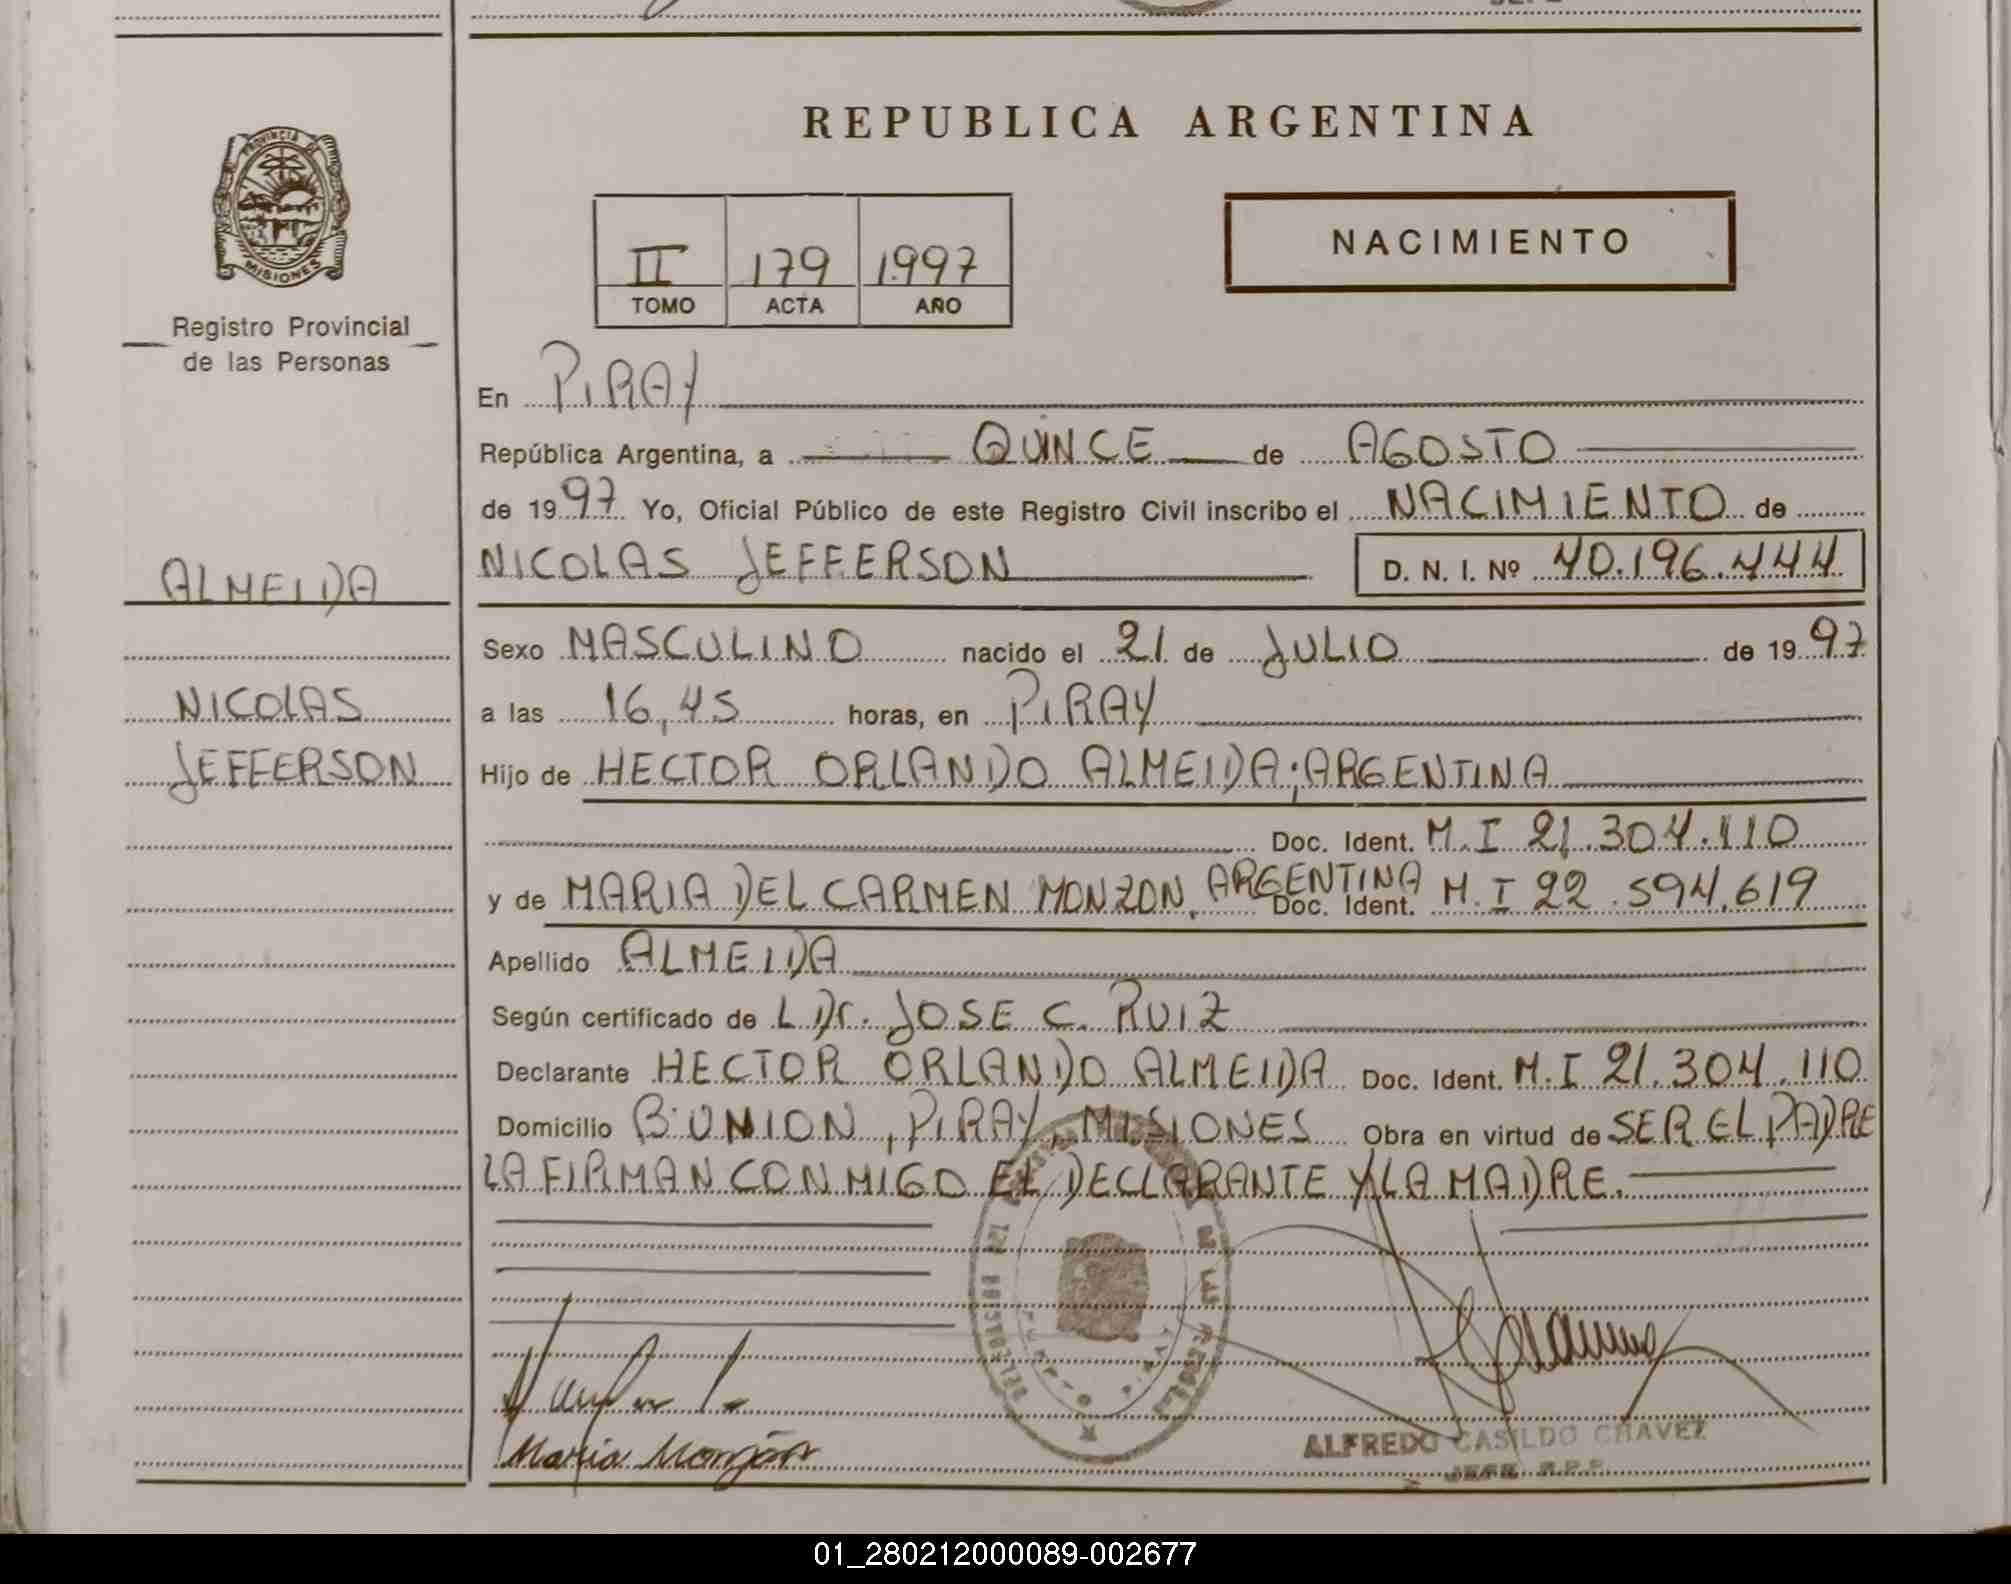 REPUBLICA ARGENTINA
PROVINCIA DE
MISIONES
Registro Provincial
de las Personas
II 179 1997
TOMO ACTA AÑO
NACIMIENTO
En PIRAY
República Argentina, a QUINCE de AGOSTO
de 1997 Yo, Oficial Público de este Registro Civil inscribo el NACIMIENTO de
NICOLAS JEFFERSON D. N. I. Nº 40.196.444
ALMEIDA
Sexo MASCULINO nacido el 21 de JULIO de 1997
NICOLAS
a las 16,45 horas, en PIRAY
JEFFERSON
Hijo de HECTOR ORLANDO ALMEIDA; ARGENTINA
Doc. Ident. M.I 21.304.110
y de MARIA DEL CARMEN MONZON, ARGENTINA Doc. Ident. M.I 22.594.619
Apellido ALMEIDA
Según certificado de L Dr. JOSE C. RUIZ
Declarante HECTOR ORLANDO ALMEIDA Doc. Ident. M.I 21.304.110
Domicilio Bº UNION, PIRAY, MISIONES Obra en virtud de SER EL PADRE
LA FIRMAN CONMIGO EL DECLARANTE Y LA MADRE.
Maria Monzón
ALFREDO CASILDO CHAVEZ
JEFE R.P.P.
01_280212000089-002677